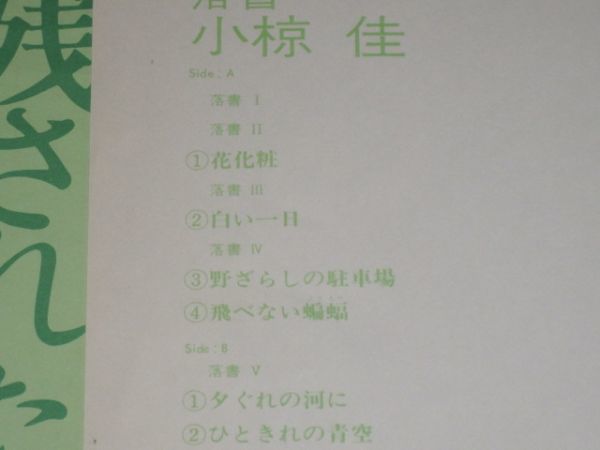 残された
落書
小椋 佳
Side : A
落書 I
落書 II
①花化粧
落書 III
②白い一日
落書 IV
③野ざらしの駐車場
④飛べない蝙蝠
Side : B
落書 V
①夕ぐれの河に
②ひときれの青空